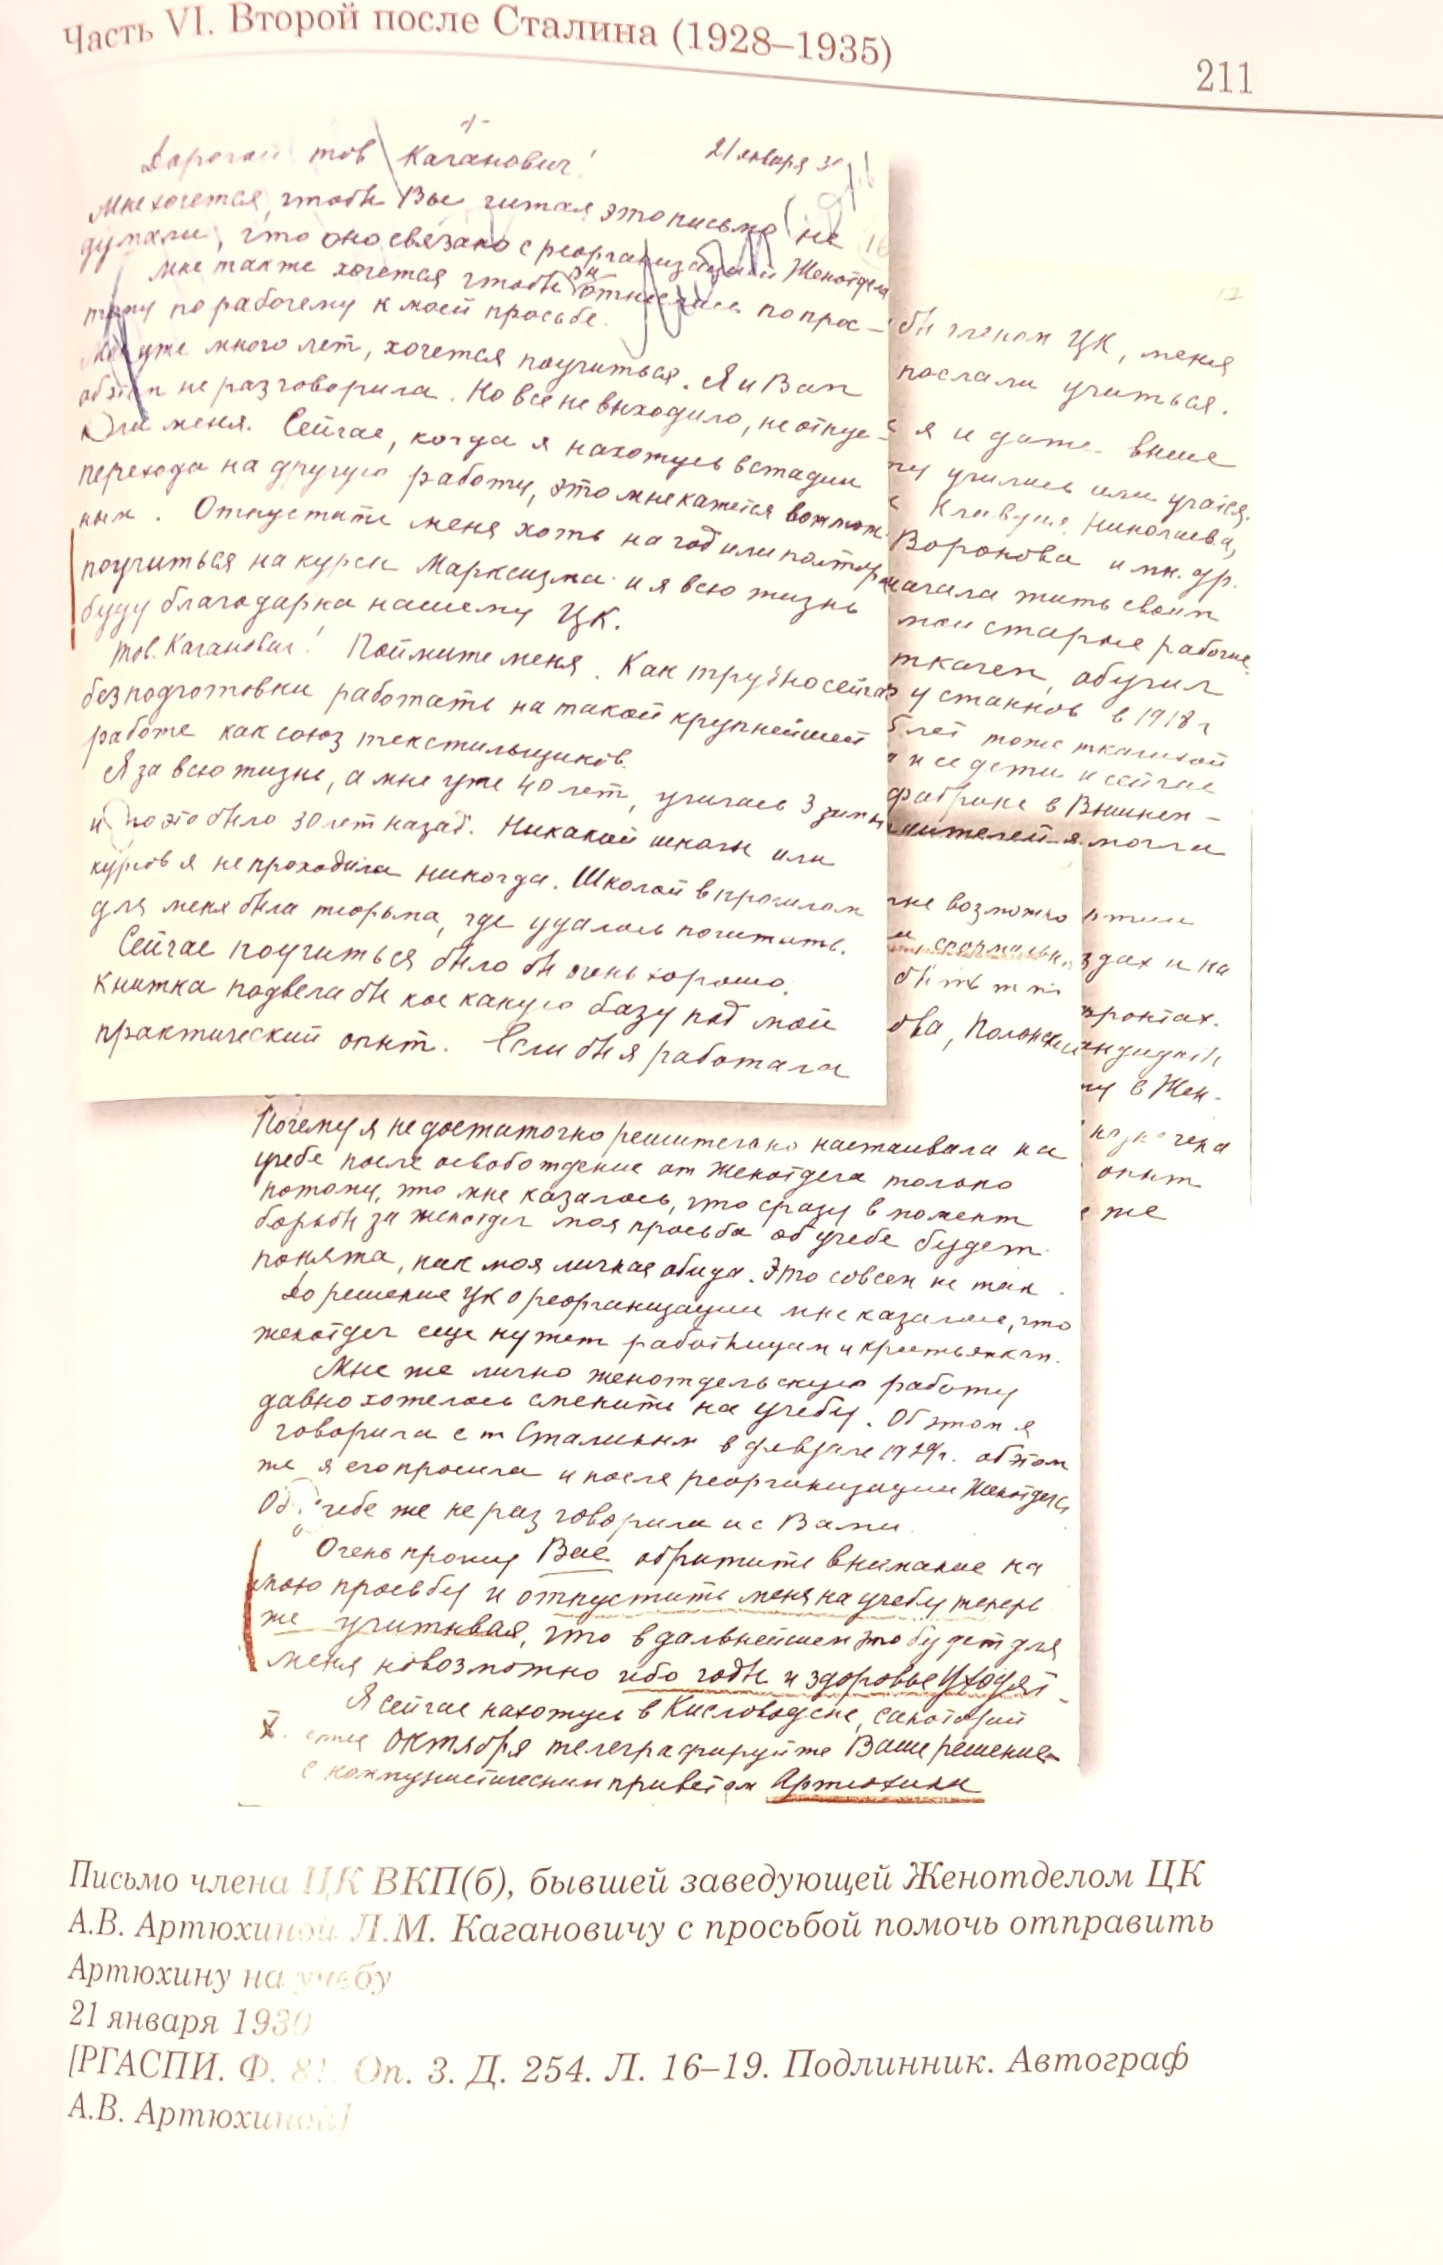 Часть VI. Второй после Сталина (1928–1935)
211
Дорогой тов Каганович!
21 января 30
Мне хочется, чтобы Вы читая это письмо не
думали, что оно связано с реорганизацией Женотдела
Мне также хочется чтобы отнеслись попрос-
тому по рабочему к моей просьбе.
Мне уже много лет, хочется поучиться. Я и Вам
об этом не раз говорила. Но все не выходило, не отпус-
кали меня. Сейчас, когда я нахожусь в стадии
перехода на другую работу, это мне кажется возмож-
ным. Отпустите меня хоть на год или полтора
поучиться на курсы Марксизма и я всю жизнь
буду благодарна нашему ЦК.
Тов. Каганович! Поймите меня. Как трудно сейчас
без подготовки работать на такой крупнейшей
работе как союз текстильщиков.
Я за всю жизнь, а мне уже 40 лет, училась 3 зимы
и то это было 30 лет назад. Никакой школы или
курсов я не проходила никогда. Школой в прошлом
для меня была тюрьма, где удалось почитать.
Сейчас поучиться было бы очень хорошо.
Книжка подвела бы кое какую базу под мой
практический опыт. Если бы я работала
17
бы членом ЦК, меня
послали учиться.
я и даже выше
учились или учатся.
Клавдия Николаева,
Воронова и мн. др.
начала жить своим
мои старые рабочие
ткачем, обучил
у станков в 1918 г
лет тоже ткачихой
и ее дети и сейчас
фабрике в Вышнем-
я могла
возможно
здах и на
быть
фронтах.
ова, Полонский
в Жен-
опыт
же
Почему я недостаточно решительно настаивала на
учебе после освобождение от женотдела только
потому, что мне казалось, что сразу в момент
борьбы за женотдел моя просьба об учебе будет
понята, как моя личная обида. Это совсем не так.
До решение ЦК о реорганизации мне казалось, что
женотдел еще нужен работницам и крестьянкам.
Мне же лично женотдельскую работу
давно хотелось сменить на учебу. Об этом я
говорила с т Сталиным в феврале 1929 г. об этом
же я его просила и после реорганизации Женотдела
Об учебе же не раз говорила и с Вами.
Очень прошу Вас обратить внимание на
мою просьбу и отпустить меня на учебу теперь
же учитывая, что в дальнейшем это будет для
меня невозможно ибо годы и здоровье уходят.
Я сейчас нахожусь в Кисловодске, санаторий
Х. Октября телеграфируйте Ваше решение
с коммунистическим приветом Артюхина
Письмо члена ЦК ВКП(б), бывшей заведующей Женотделом ЦК
А.В. Артюхиной Л.М. Кагановичу с просьбой помочь отправить
Артюхину на учебу
21 января 1930
[РГАСПИ. Ф. 81. Оп. 3. Д. 254. Л. 16–19. Подлинник. Автограф
А.В. Артюхиной]